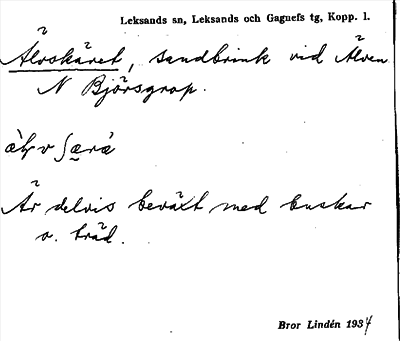 Leksands sn, Leksands och Gagnefs tg, Kopp. l.
Älvskäret, sandbrink vid Älven
N Björsgrap.
Är delvis beväxt med buskar
o. träd.
Bror Lindén 1934